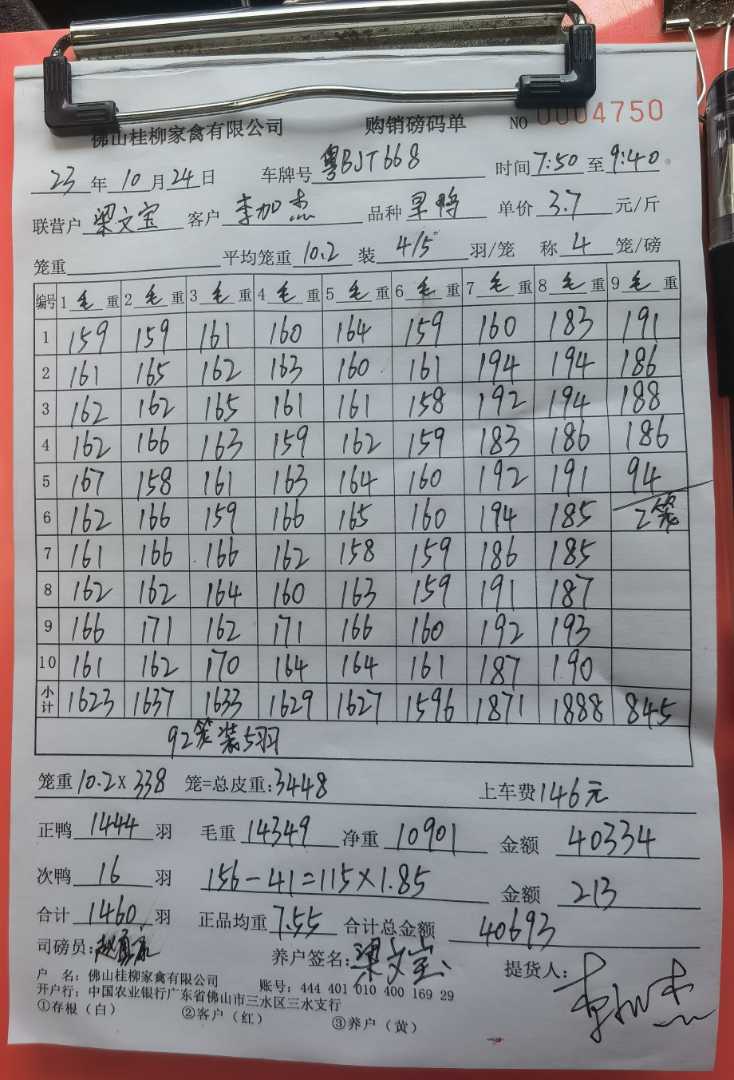 佛山桂柳家禽有限公司 购销磅码单 NO 0004750
23 年 10 月 24 日 车牌号 粤BJT668 时间 7:50 至 9:40
联营户 梁文宝 客户 李加杰 品种 单价 3.7 元/斤
笼重 平均笼重 10.2 装 4/5 羽/笼 称 4 笼/磅
编号 1 毛 重 2 毛 重 3 毛 重 4 毛 重 5 毛 重 6 毛 重 7 毛 重 8 毛 重 9 毛 重
1 159 159 161 160 164 159 160 183 191
2 161 165 162 163 160 161 194 194 186
3 162 162 165 161 161 158 192 194 188
4 162 166 163 159 162 159 183 186 186
5 167 158 161 163 164 160 192 191 94
6 162 166 159 166 165 160 194 185 2笼
7 161 166 166 162 158 159 186 185
8 162 162 164 160 163 159 191 187
9 166 171 162 171 166 160 192 193
10 161 162 170 164 164 161 187 190
小计 1623 1637 1633 1629 1627 1596 1871 1888 845
92笼装5羽
笼重 10.2 X 338 笼=总皮重:3448 上车费 146元
正鸭 1444 羽 毛重 14349 净重 10901 金额 40334
次鸭 16 羽 156-41=115×1.85 金额 213
合计 1460 羽 正品均重 7.55 合计总金额 40693
司磅员: 养户签名: 梁文宝 提货人: 李加杰
户 名: 佛山桂柳家禽有限公司 账号: 444 401 010 400 169 29
开户行: 中国农业银行广东省佛山市三水区三水支行
①存根（白） ②客户（红） ③养户（黄）